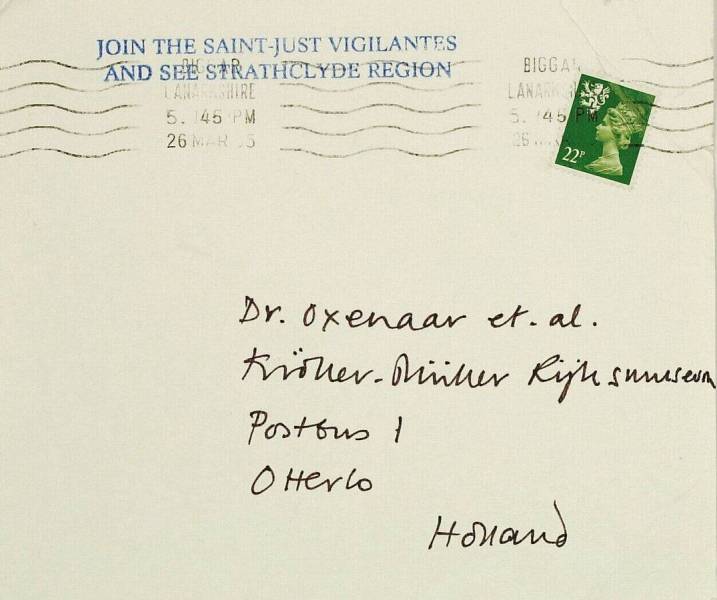 JOIN THE SAINT-JUST VIGILANTES
AND SEE STRATHCLYDE REGION
BIGGAR
LANARKSHIRE
5. 45 PM
26 MAR
BIGGAR
LANARKSHIRE
5. 45 PM
26
22P
Dr. Oxenaar et. al.
Kröller-Müller Rijksmuseum
Postbus 1
Otterlo
Holland